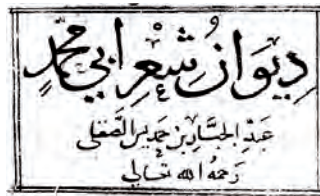 ديوان شعر أبي محمد
عبد الجبار بن حمديس الصقلي
رحمه الله تعالى